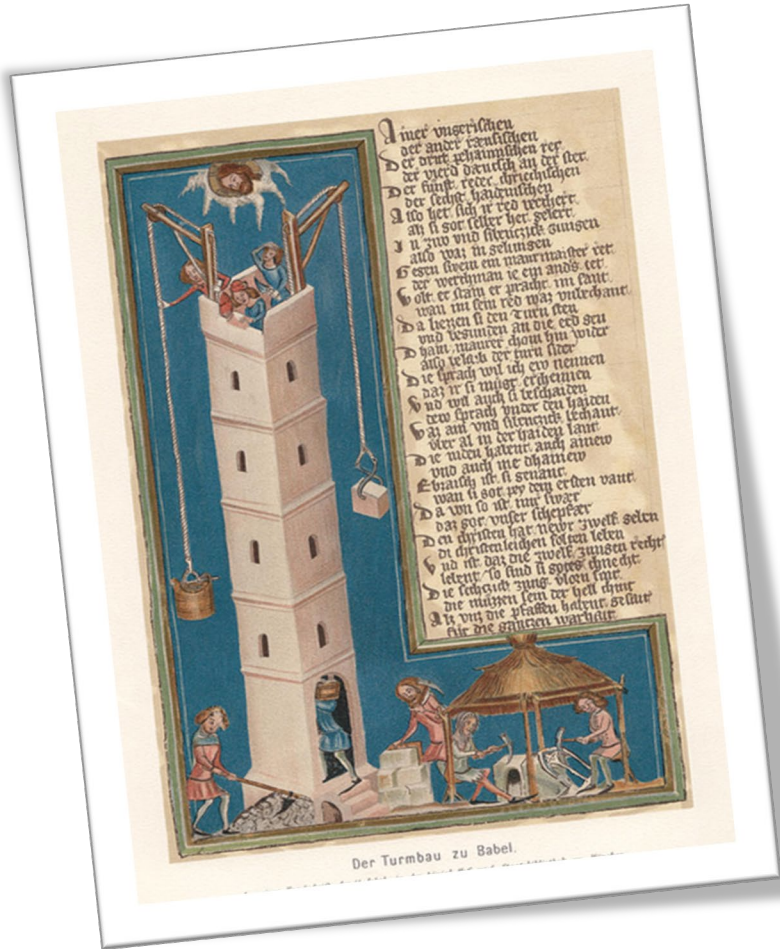 Ainer vngerischen
der ander räusischen
Der drut pehaimischen ret
der vierd däutsch an der stet
Der fünft redet chriechischen
der sechst haidenischen
Also het sich ir red verchert
als si got selber het gelert
In zwo und sibenczick zungen
also waz in gelungen
Gegen swem ein maurmaister ret
der werchman ie ein anders tet
Wolt er stain er pracht im sant
wan im sein red waz vnbechant
Da liezzen si den Turn sten
vnd begunden an die erd gen
Dhain maurer chom hin wider
also belaib der turn sider
Die sprach wil ich ew nennen
daz ir si mügt erchennen
Vnd wil auch si beschaiden
dew sprach vnder den haiden
Waz ains vnd sibenczick bechant
vber al in der haiden lant
Die iuden habent auch ainew
vnd auch nit dhainew
Ebraisch ist si genant
wan si got pey dem ersten vant
Da von so ist mir swär
daz got vnser schepfär
Den christen hat newr zwelf geben
di christenleichen solten leben
Vnd ist daz die zwelf zungen recht
lebent so sind si gotes chnecht
Die sechczick zung
die müzzen sein der hell chint
Alz vns die pfaffen habent gesait
für die gantzen warhait
Der Turmbau zu Babel.